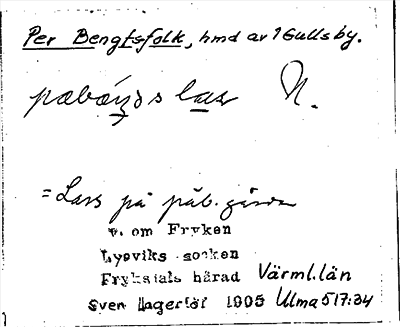 Per Bengtsfolk, hmd av 1 Gullsby.
N.
= Lars på påb. gården
v. om Fryken
Lysviks socken
Fryksdals härad Värml.län
Sven Lagerlöf 1905 Ulma 517:34